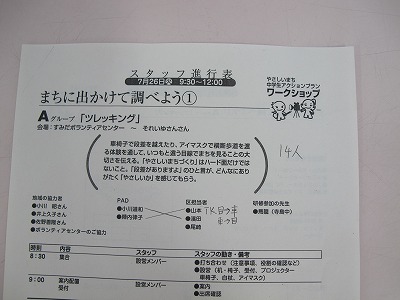 スタッフ進行表
7月26日㊌ 9:30～12:00
まちに出かけて調べよう①
やさしいまち
中学生アクションプラン
ワークショップ
Aグループ「ツレッキング」
会場：すみだボランティアセンター ～ それいゆさんさん
車椅子で段差を越えたり、アイマスクで横断歩道を渡
る体験を通して、いつもと違う目線でまちを見ることの大
切さを伝える。「やさしいまちづくり」はハード面だけでは
ないこと。「段差がありますよ」のひと言が、どんなにあり
がたく「やさしいか」を感じてもらう。
14人
地域の協力者
●小川 昭さん
●井上久子さん
●佐野善晴さん
●ボランティアセンターのご協力
PAD
●小川雄和
●柳内律子
区担当者
●山本
●濱田
●尾崎
研修参加の先生
●鷹屋（寺島中）
時刻 内容 スタッフ スタッフの動き・備考
8:30 集合 設営メンバー ●打ち合わせ（注意事項、役割の確認など）
●設営（机・椅子、受付、プロジェクター
車椅子、白杖、アイマスク）
9:00 案内配置 設営メンバー ●案内
受付 ●出席確認